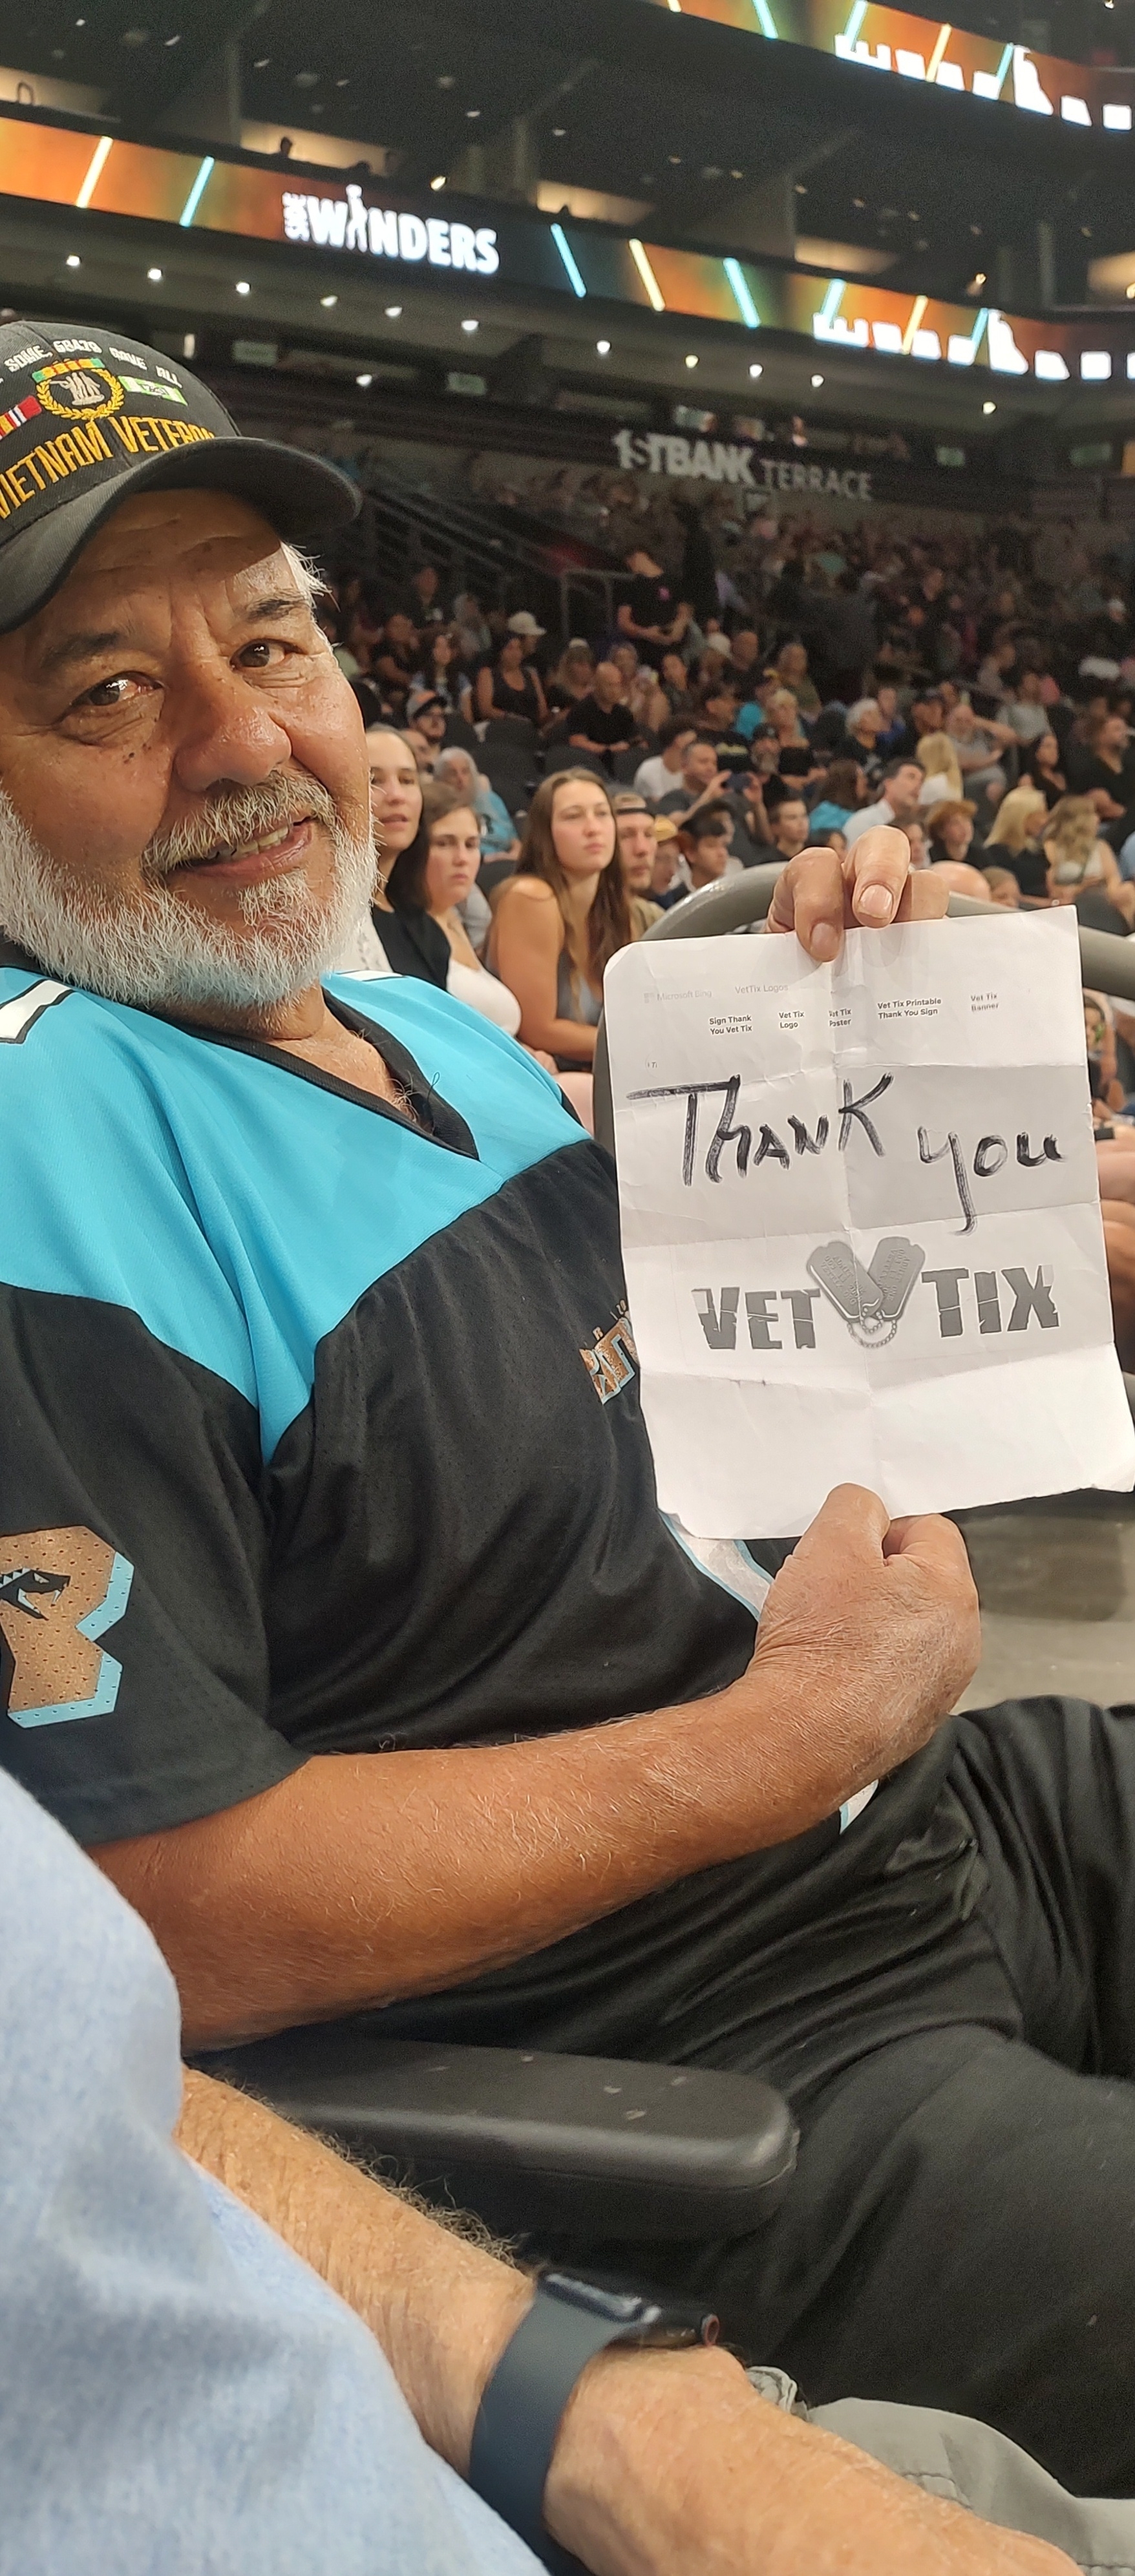 SIDE WINDERS
1STBANK TERRACE
SOME, 58479 GAVE ALL
VIETNAM VETERAN
Microsoft Bing VetTix Logos
Sign Thank You Vet Tix
Vet Tix Logo
Vet Tix Poster
Vet Tix Printable Thank You Sign
Vet Tix Banner
THANK you
VET TIX